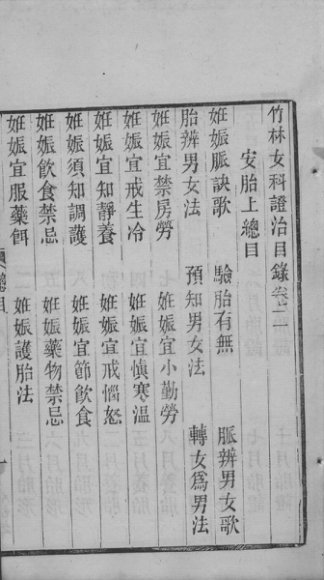 竹林女科證治目錄卷二
安胎上總目
妊娠脈訣歌 驗胎有無 脈辨男女歌
胎辨男女法 預知男女法 轉女爲男法
妊娠宜禁房勞 妊娠宜小勤勞
妊娠宜戒生冷 妊娠宜慎寒溫
妊娠宜知靜養 妊娠宜戒惱怒
妊娠須知調護 妊娠宜節飲食
妊娠飲食禁忌 妊娠藥物禁忌
妊娠宜服藥餌 妊娠護胎法
總目